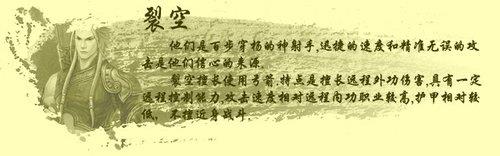 裂空
他们是百步穿杨的神射手,迅捷的速度和精准无误的攻
去是他们信心的来源.
裂空擅长使用弓箭.特点是擅长远程外功伤害,具有一定
远程控制能力,攻击速度相对远程内功职业较高,护甲相对较
低, 不擅近身战斗.